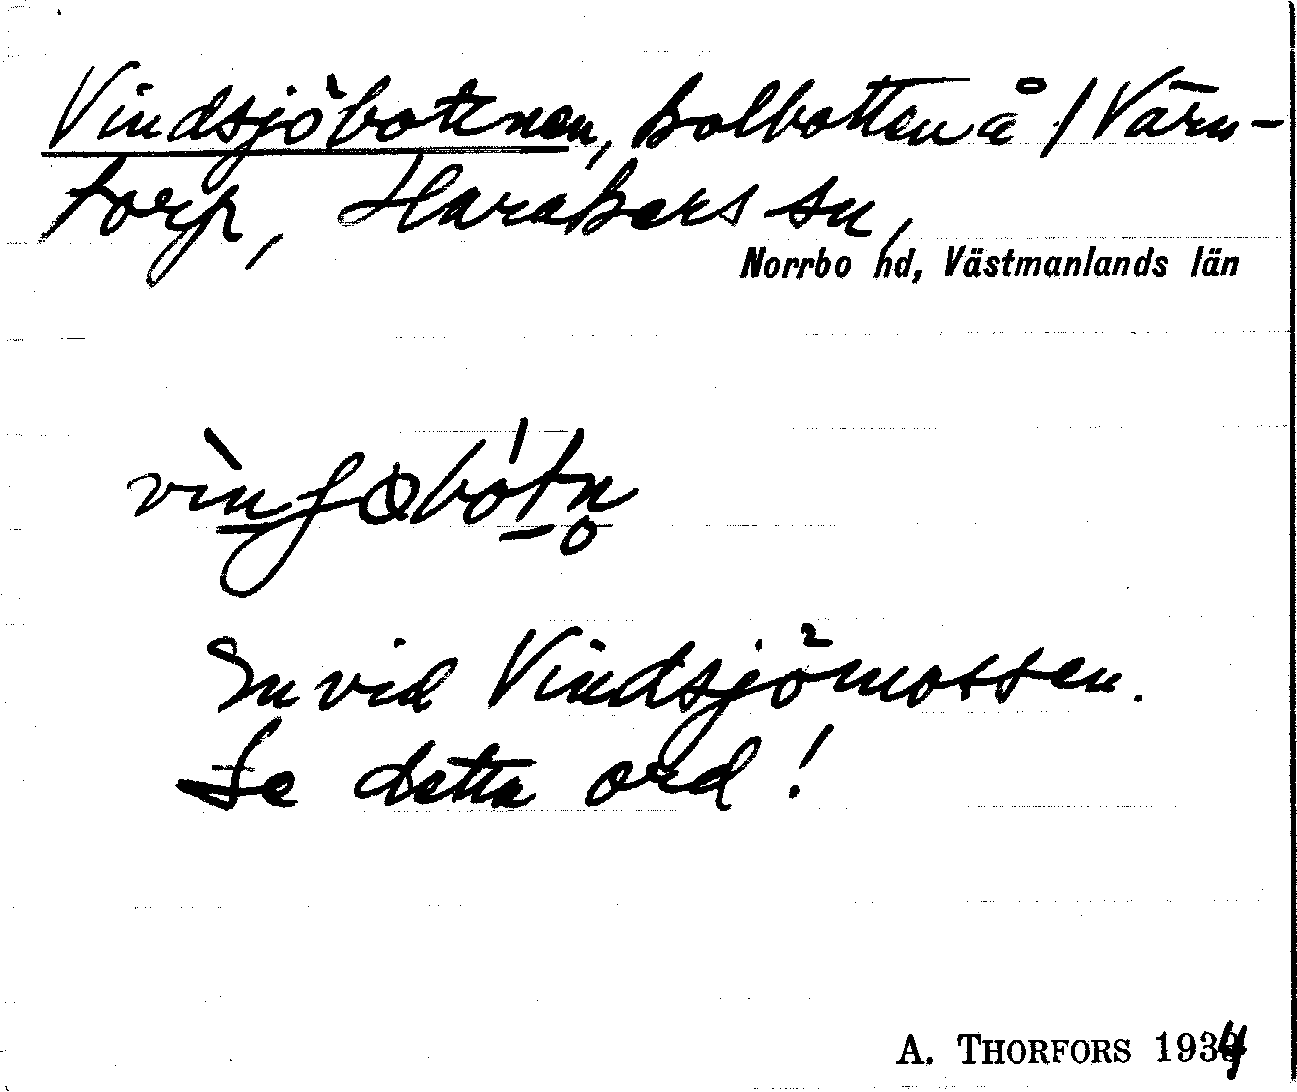 Vindsjöbottnen, kolbotten å 1 Värn-
torp, Harakers sn,
Norrbo hd, Västmanlands län
Invid Vindsjömossen.
Se detta ord!
A. THORFORS 1934